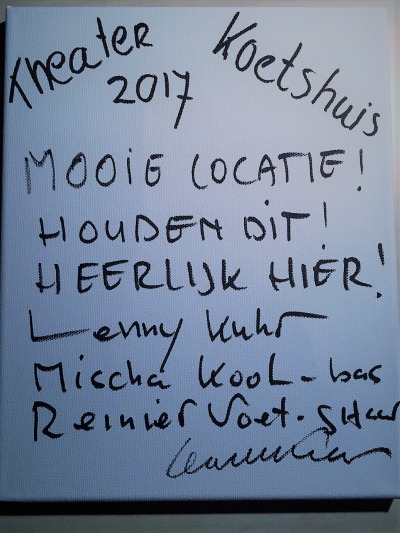 Theater Koetshuis
2017
MOOIE LOCATIE!
HOUDEN DIT!
HEERLIJK HIER!
Lenny Kuhr
Mischa Kool - bas
Reinier Voet - gitaar